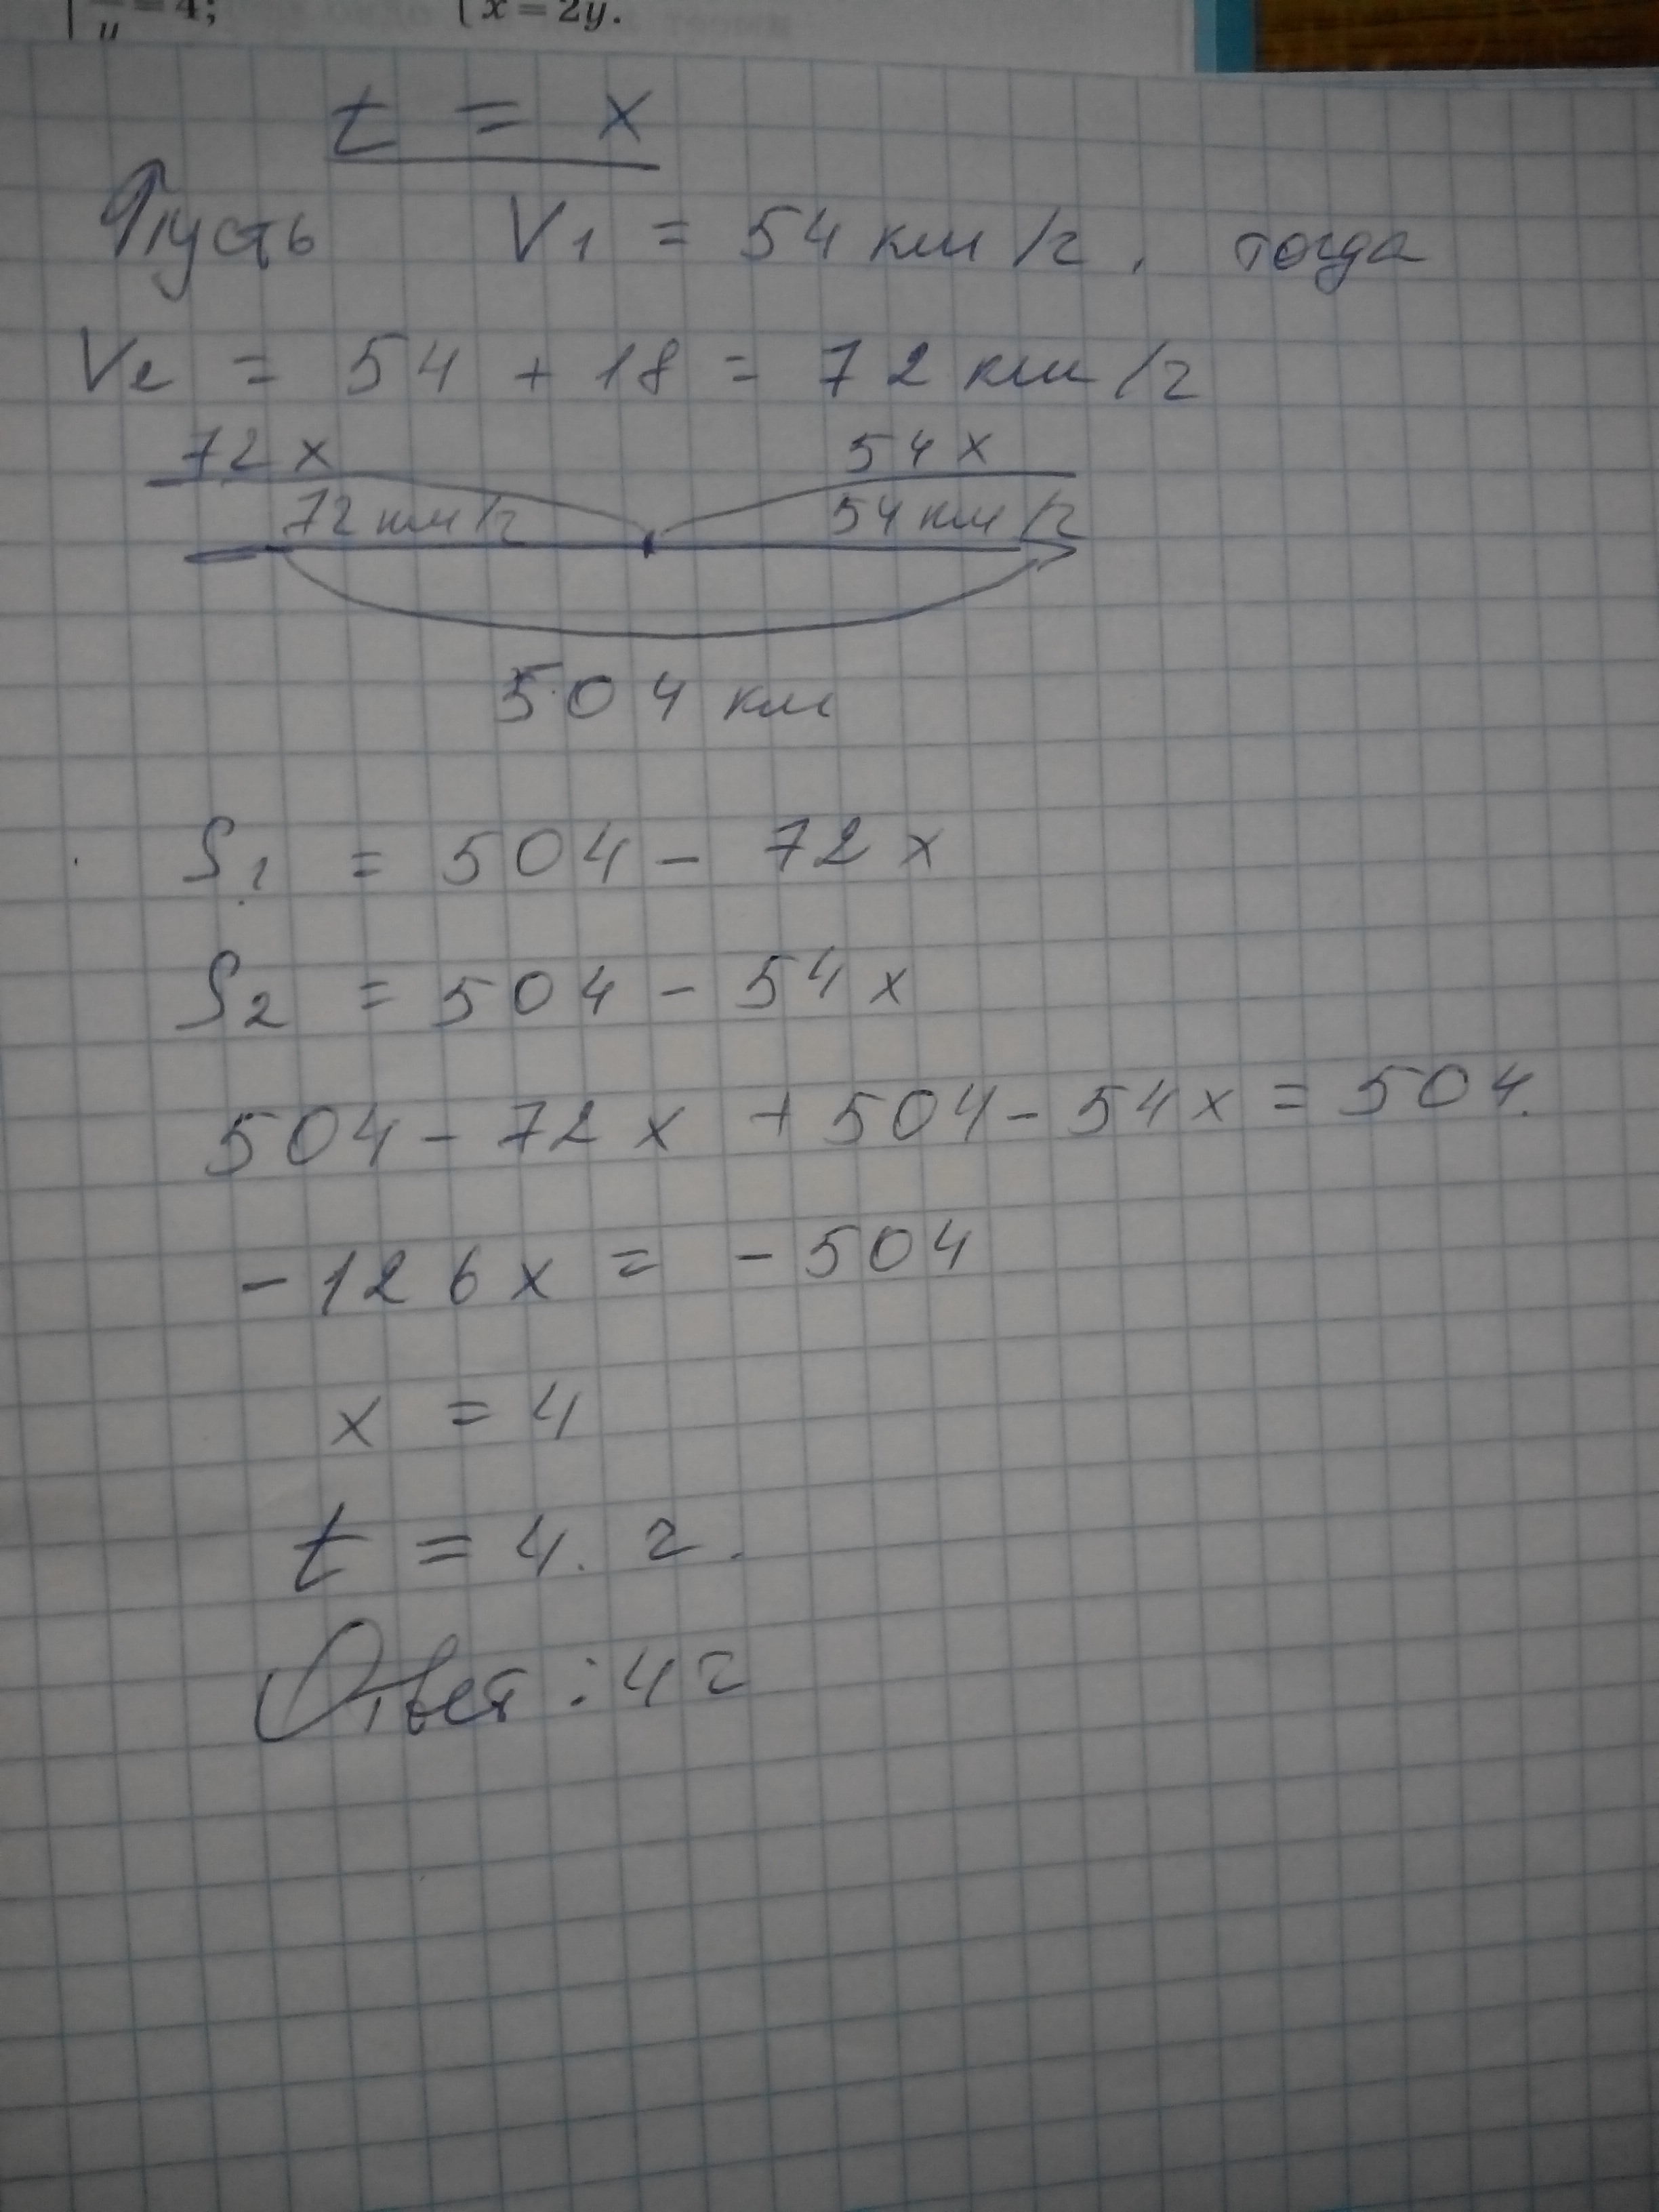 = 4;
x = 2y.
t = x
Пусть V1 = 54 км/г, тогда
V2 = 54 + 18 = 72 км/г
72x 54x
72 км/г 54 км/г
504 км
S1 = 504 - 72x
S2 = 504 - 54x
504 - 72x + 504 - 54x = 504.
-126x = -504
x = 4
t = 4. г.
Ответ: 4 г